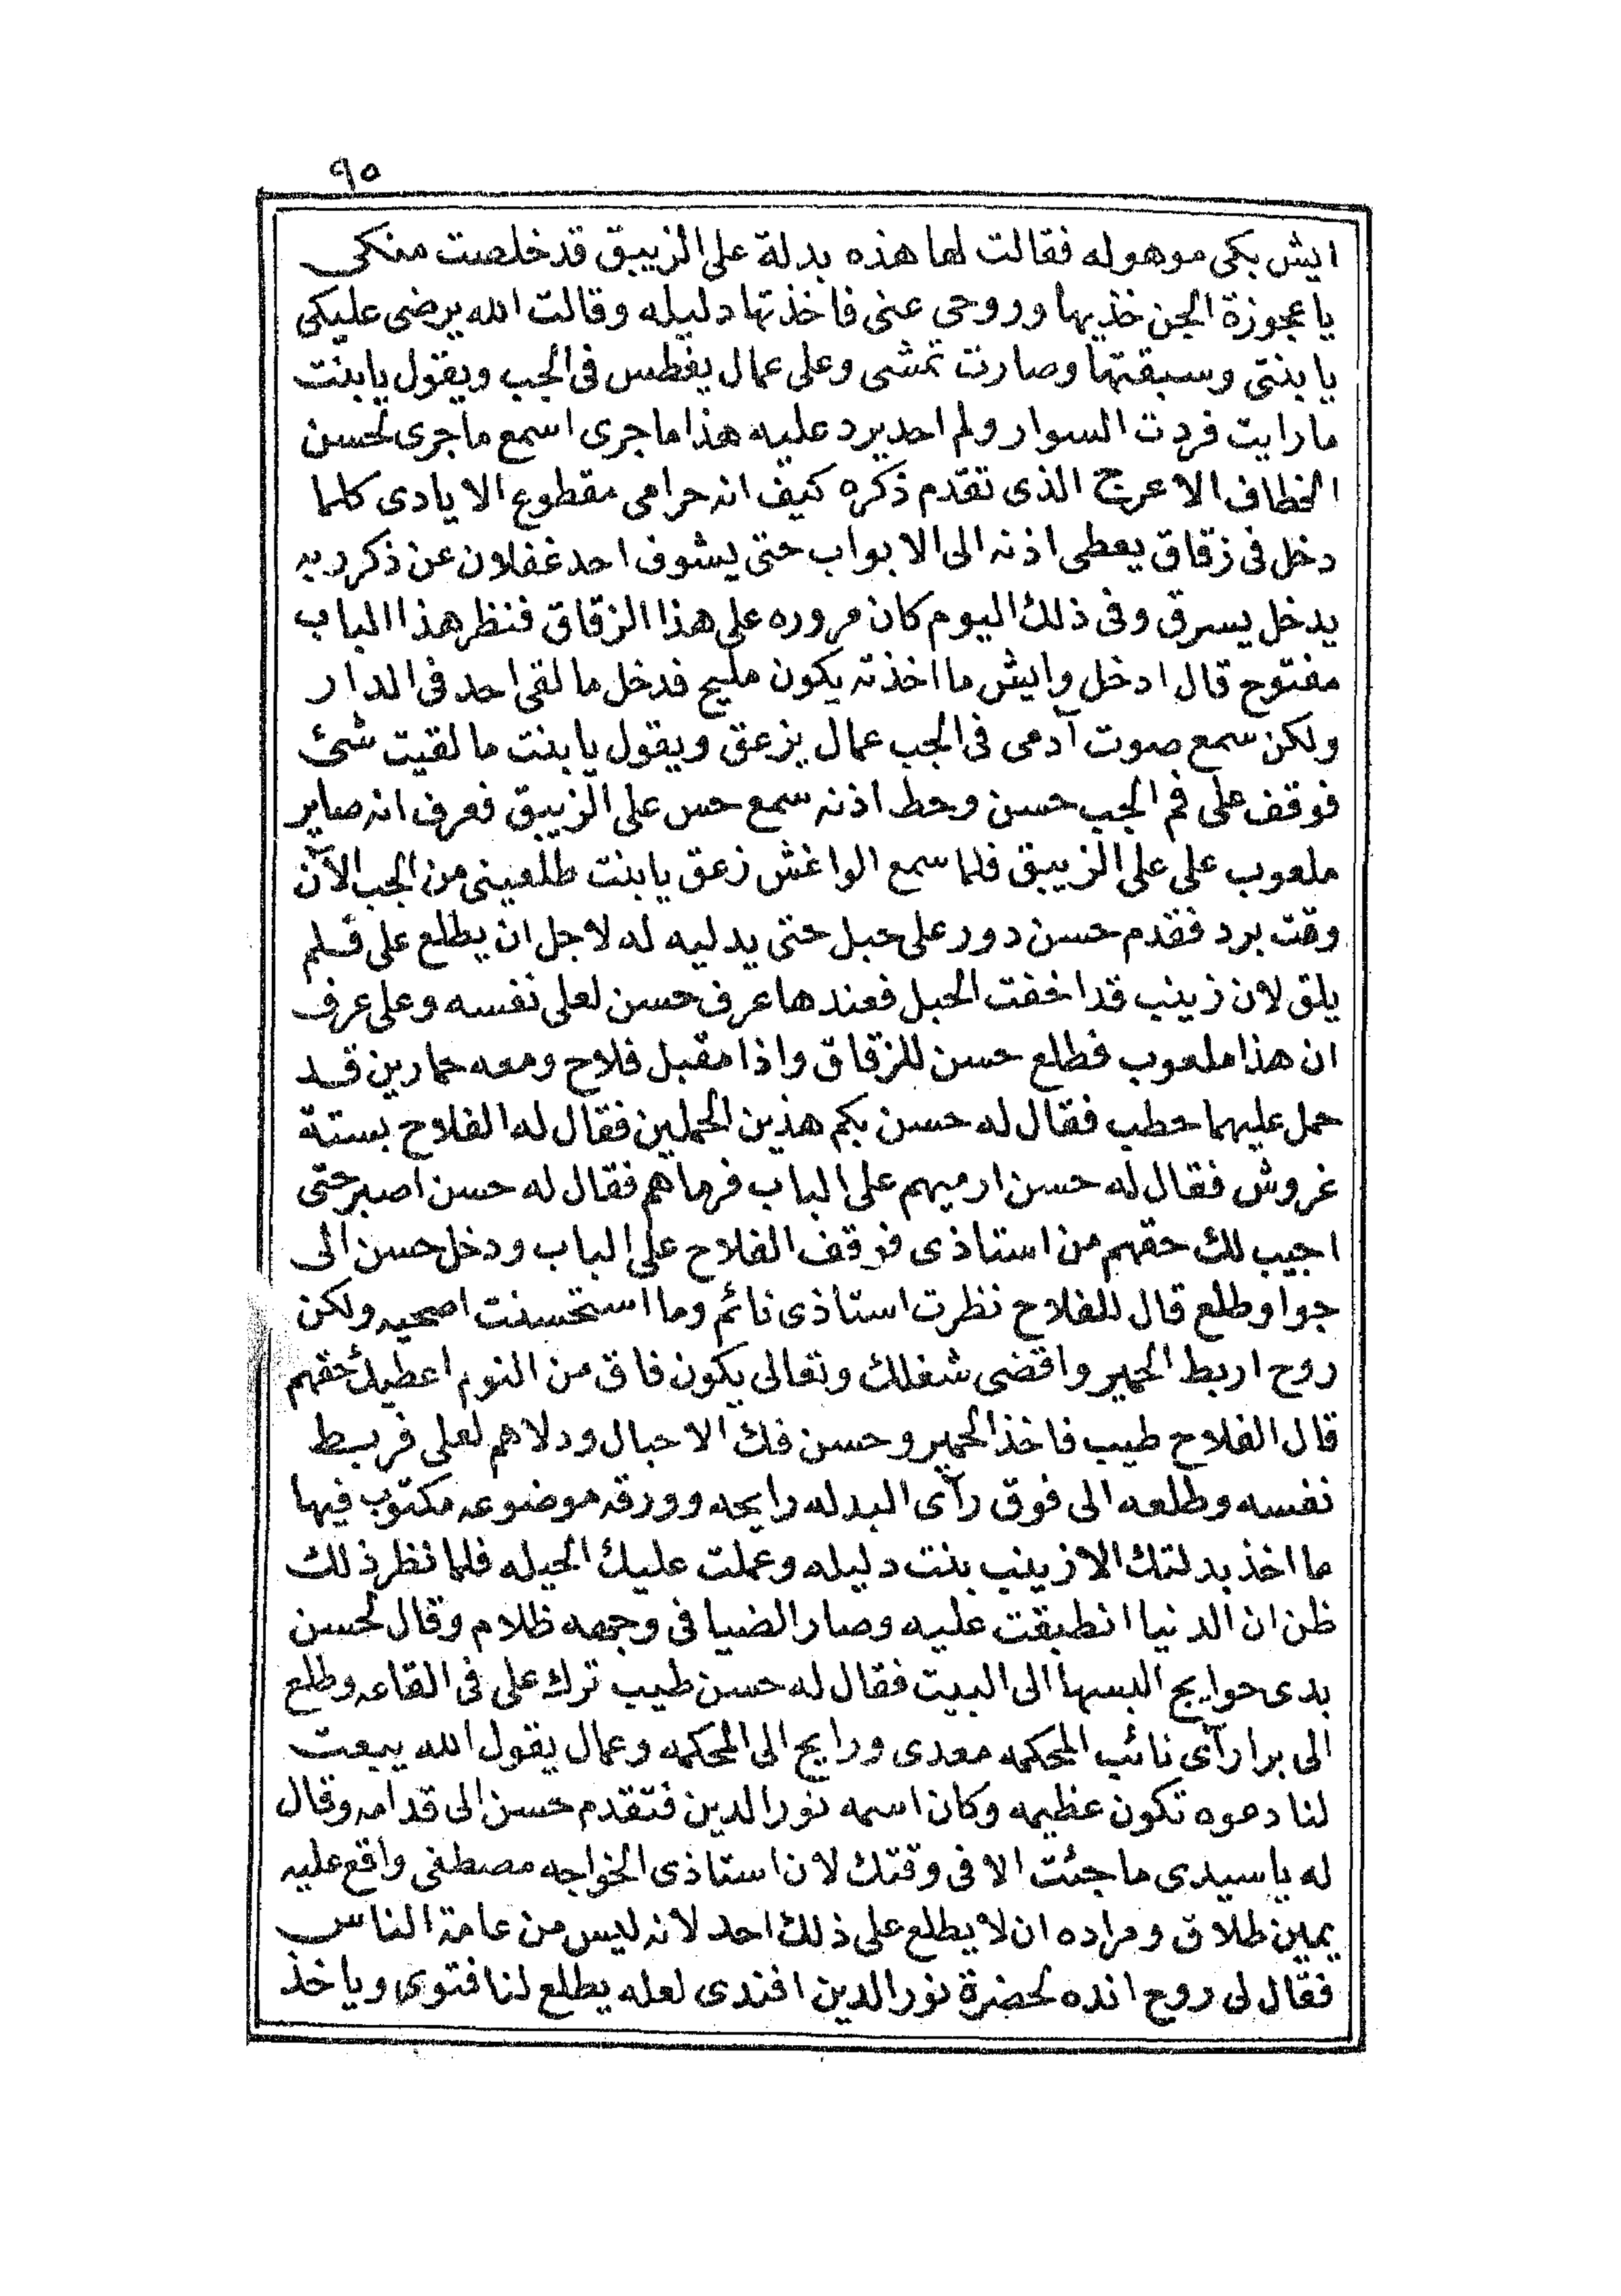 ٩٥
ايش بكى موهوله فقالت لها هذه بدلة على الزيبق قد خلصت منكى
يا عجوزة الجن خذيها وروحى عنى فاخذتها دليله وقالت الله يرضى عليكى
يا بنتى وسبقتها وصارت تمشى وعلى عمال يغطس فى الجب ويقول يا بنت
ما رايت فردت السوار ولم احد يرد عليه هذا ما جرى اسمع ما جرى لحسن
الخطاف الاعرج الذى تقدم ذكره كيف انه حرامى مقطوع الايادى كلما
دخل فى زقاق يعطى اذنه الى الابواب حتى يشوف احد غفلان عن ذكر ديه
يدخل يسرق وفى ذلك اليوم كان مروره على هذا الزقاق فنظر هذا الباب
مفتوح قال ادخل وايش ما اخذته يكون مليح فدخل ما لقى احد فى الدار
ولكن سمع صوت آدمى فى الجب عمال يزعق ويقول يا بنت ما لقيت شئ
فوقف على فم الجب حسن وحط اذنه سمع حس على الزيبق فعرف انه صاير
ملعوب على على الزيبق فلما سمع الواغش زعق يا بنت طلعينى من الجب الآن
وقت برد فقدم حسن دور على حبل حتى يدليه له لاجل ان يطلع على فلم
يلق لان زينب قد اخفت الحبل فعندها عرف حسن لعلى نفسه وعلى عرف
ان هذا ملعوب فطلع حسن للزقاق واذا مقبل فلاح ومعه حمارين قد
حمل عليهما حطب فقال له حسن بكم هذين الحملين فقال له الفلاح بستة
غروش فقال له حسن ارميهم على الباب فرماهم فقال له حسن اصبر حتى
اجيب لك حقهم من استاذى فوقف الفلاح على الباب ودخل حسن الى
جوا وطلع قال للفلاح نظرت استاذى نائم وما استحسنت اصحيه ولكن
روح اربط الحمير واقضى شغلك وتعالى يكون فاق من النوم اعطيك حقهم
قال الفلاح طيب فاخذ الحمير وحسن فك الاحبال ودلاهم لعلى فربط
نفسه وطلعه الى فوق رآى البدله رايحه وورقه موضوعه مكتوب فيها
ما اخذ بدلتك الا زينب بنت دليله وعملت عليك الحيله فلما نظر ذلك
ظن ان الدنيا انطبقت عليه وصار الضيا فى وجهه ظلام وقال لحسن
بدى حوايج البسها الى البيت فقال له حسن طيب ترك على فى القاعه وطلع
الى برا رآى نائب المحكمه معدى ورايح الى المحكمه وعمال يقول الله يبعت
لنا دعوه تكون عظيمه وكان اسمه نور الدين فتقدم حسن الى قدامه وقال
له يا سيدى ما جئت الا فى وقتك لان استاذى الخواجه مصطفى واقع عليه
يمين طلاق ومراده ان لا يطلع على ذلك احد لانه ليس من عامة الناس
فقال لى روح انده لحضرة نور الدين افندى لعله يطلع لنا فتوى وياخذ